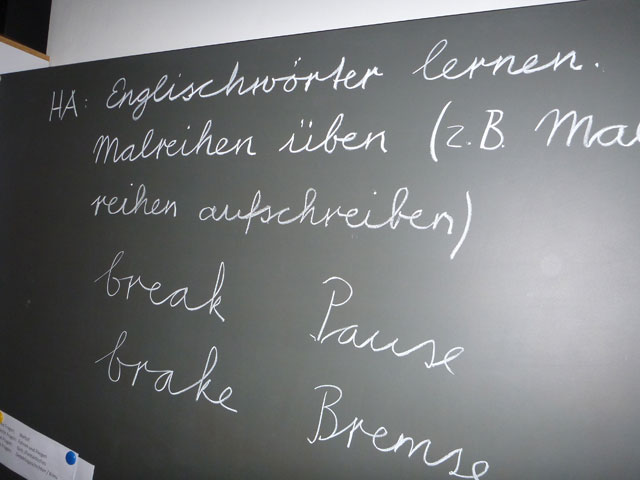 HA: Englischwörter lernen.
Malreihen üben (z.B. Mal
reihen aufschreiben)
break Pause
brake Bremse